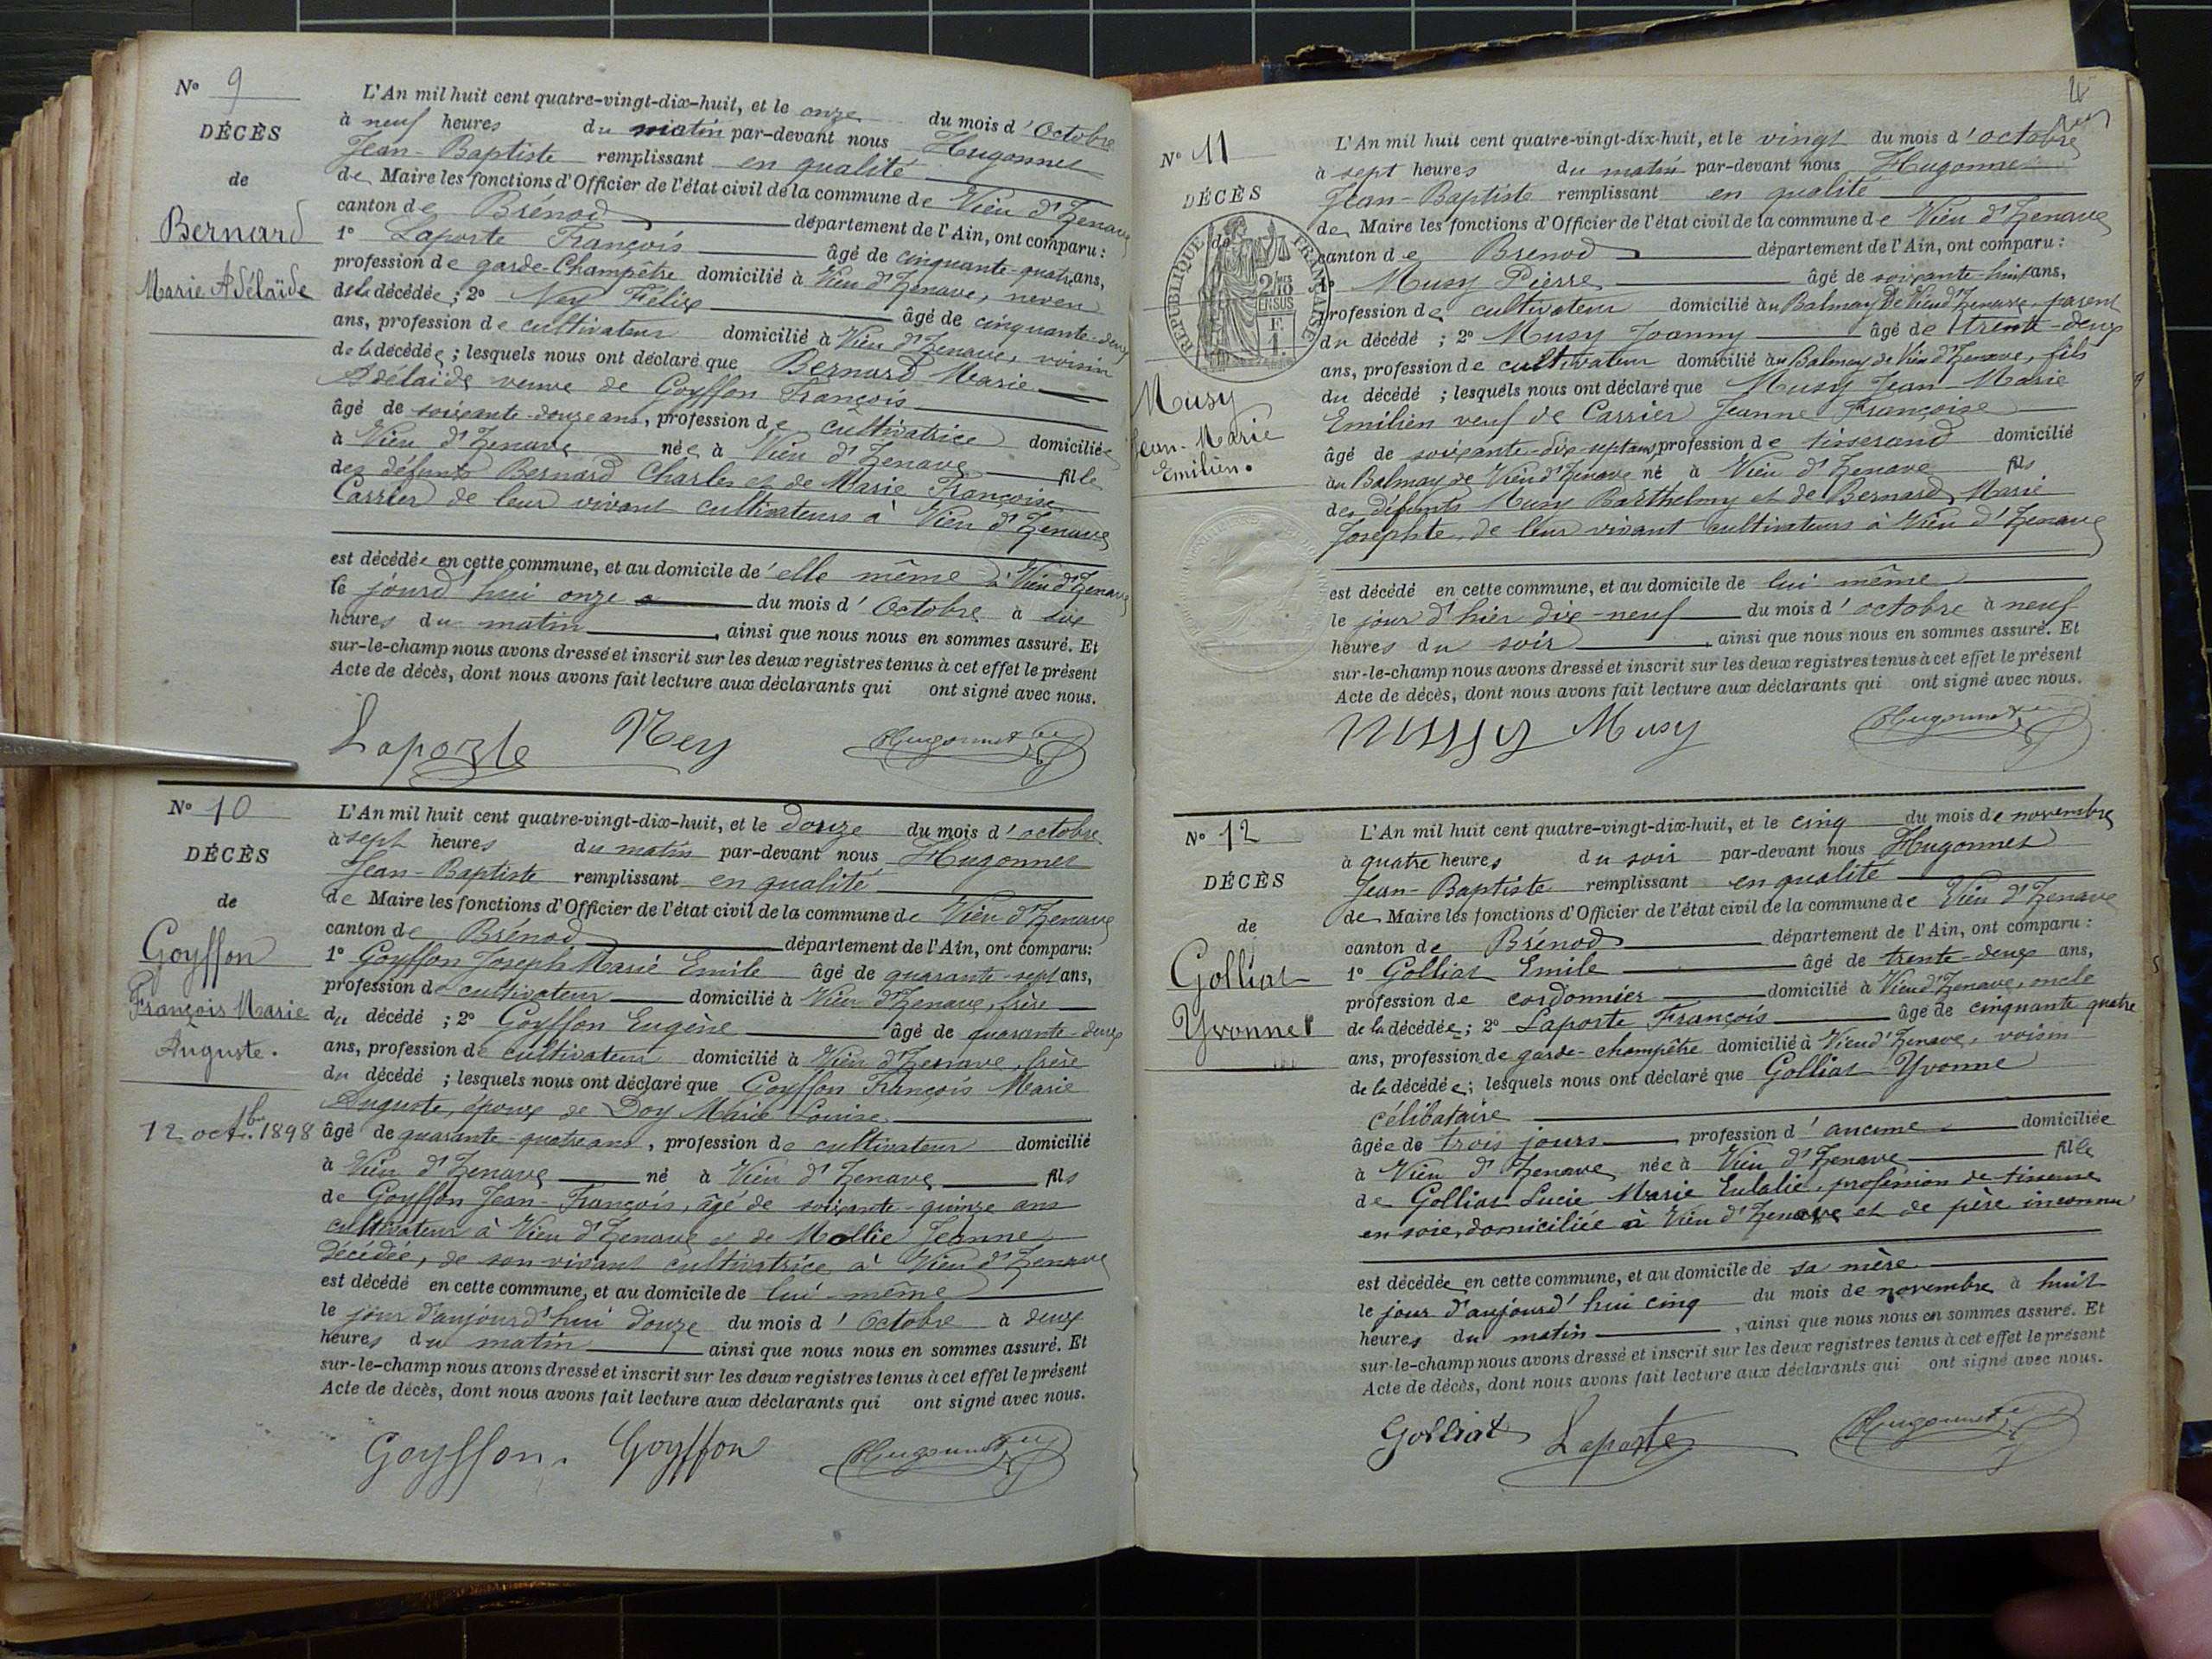 N° 9
DÉCÈS
de
Bernard
Marie Adélaïde
L'An mil huit cent quatre-vingt-dix-huit, et le onze du mois d'Octobre
à neuf heures du matin par-devant nous Hugonnet
Jean-Baptiste remplissant en qualité
de Maire les fonctions d'Officier de l'état civil de la commune de Vieu d'Izenave
canton de Brénod département de l'Ain, ont comparu:
1° Laporte François âgé de cinquante-quatre ans,
profession de garde-Champêtre domicilié à Vieu d'Izenave, neveu
de la décédée; 2° Ney Félix âgé de cinquante-deux
ans, profession de cultivateur domicilié à Vieu d'Izenave, voisin
de la décédée; lesquels nous ont déclaré que Bernard Marie
Adélaïde veuve de Goyffon François
âgé de soixante-douze ans, profession de cultivatrice domiciliée
à Vieu d'Izenave née à Vieu d'Izenave fille
des défunts Bernard Charles et de Marie Françoise
Carrier de leur vivant cultivateurs à Vieu d'Izenave
est décédée en cette commune, et au domicile de elle même à Vieu d'Izenave
le jourd'hui onze du mois d'Octobre à six
heures du matin, ainsi que nous nous en sommes assuré. Et
sur-le-champ nous avons dressé et inscrit sur les deux registres tenus à cet effet le présent
Acte de décès, dont nous avons fait lecture aux déclarants qui ont signé avec nous.
Laporte Ney Hugonnet
N° 10
DÉCÈS
de
Goyffon
François Marie
Auguste.
12 octbre 1898
L'An mil huit cent quatre-vingt-dix-huit, et le douze du mois d'octobre
à sept heures du matin par-devant nous Hugonnet
Jean-Baptiste remplissant en qualité
de Maire les fonctions d'Officier de l'état civil de la commune de Vieu d'Izenave
canton de Brénod département de l'Ain, ont comparu:
1° Goyffon Joseph Marie Emile âgé de quarante-sept ans,
profession de cultivateur domicilié à Vieu d'Izenave, frère
du décédé; 2° Goyffon Eugène âgé de quarante-deux
ans, profession de cultivateur domicilié à Vieu d'Izenave, frère
du décédé; lesquels nous ont déclaré que Goyffon François Marie
Auguste, époux de Doy Marie Louise
âgé de quarante-quatre ans, profession de cultivateur domicilié
à Vieu d'Izenave né à Vieu d'Izenave fils
de Goyffon Jean-François, âgé de soixante-quinze ans
cultivateur à Vieu d'Izenave et de Mollie Jeanne
décédée, de son vivant cultivatrice à Vieu d'Izenave
est décédé en cette commune, et au domicile de lui-même
le jour d'aujourd'hui douze du mois d'Octobre à deux
heures du matin ainsi que nous nous en sommes assuré. Et
sur-le-champ nous avons dressé et inscrit sur les deux registres tenus à cet effet le présent
Acte de décès, dont nous avons fait lecture aux déclarants qui ont signé avec nous.
Goyffon. Goyffon Hugonnet
N° 11
DÉCÈS
de
RÉPUBLIQUE FRANÇAISE
2/10 EN SUS
Musy
Jean-Marie
Emilien.
L'An mil huit cent quatre-vingt-dix-huit, et le vingt du mois d'octobre
à sept heures du matin par-devant nous Hugonnet
Jean-Baptiste remplissant en qualité
de Maire les fonctions d'Officier de l'état civil de la commune de Vieu d'Izenave
canton de Brenod département de l'Ain, ont comparu:
1° Musy Pierre âgé de soixante-huit ans,
profession de cultivateur domicilié au Balmay de Vieu d'Izenave, parent
du décédé; 2° Musy Joanny âgé de trente-deux
ans, profession de cultivateur domicilié au Balmay de Vieu d'Izenave, fils
du décédé; lesquels nous ont déclaré que Musy Jean-Marie
Emilien veuf de Carrier Jeanne Françoise
âgé de soixante-dix-sept ans profession de tisserand domicilié
au Balmay de Vieu d'Izenave né à Vieu d'Izenave fils
des défunts Musy Barthelmy et de Bernard Marie
Josephte, de leur vivant cultivateurs à Vieu d'Izenave
est décédé en cette commune, et au domicile de lui même
le jour d'hier dix-neuf du mois d'octobre à neuf
heures du soir, ainsi que nous nous en sommes assuré. Et
sur-le-champ nous avons dressé et inscrit sur les deux registres tenus à cet effet le présent
Acte de décès, dont nous avons fait lecture aux déclarants qui ont signé avec nous.
Mussy Musy Hugonnet
N° 12
DÉCÈS
de
Golliat
Yvonne
L'An mil huit cent quatre-vingt-dix-huit, et le cinq du mois de novembre
à quatre heures du soir par-devant nous Hugonnet
Jean-Baptiste remplissant en qualité
de Maire les fonctions d'Officier de l'état civil de la commune de Vieu d'Izenave
canton de Brénod département de l'Ain, ont comparu:
1° Golliat Emile âgé de trente-deux ans,
profession de cordonnier domicilié à Vieu d'Izenave, oncle
de la décédée; 2° Laporte François âgé de cinquante quatre
ans, profession de garde-champêtre domicilié à Vieu d'Izenave, voisin
de la décédée; lesquels nous ont déclaré que Golliat Yvonne
célibataire
âgée de trois jours, profession d'aucune domiciliée
à Vieu d'Izenave née à Vieu d'Izenave fille
de Golliat Lucie Marie Eulalie, profession de tisseuse
en soie, domiciliée à Vieu d'Izenave et de père inconnu
est décédée en cette commune, et au domicile de sa mère
le jour d'aujourd'hui cinq du mois de novembre à huit
heures du matin, ainsi que nous nous en sommes assuré. Et
sur-le-champ nous avons dressé et inscrit sur les deux registres tenus à cet effet le présent
Acte de décès, dont nous avons fait lecture aux déclarants qui ont signé avec nous.
Golliat Laporte Hugonnet